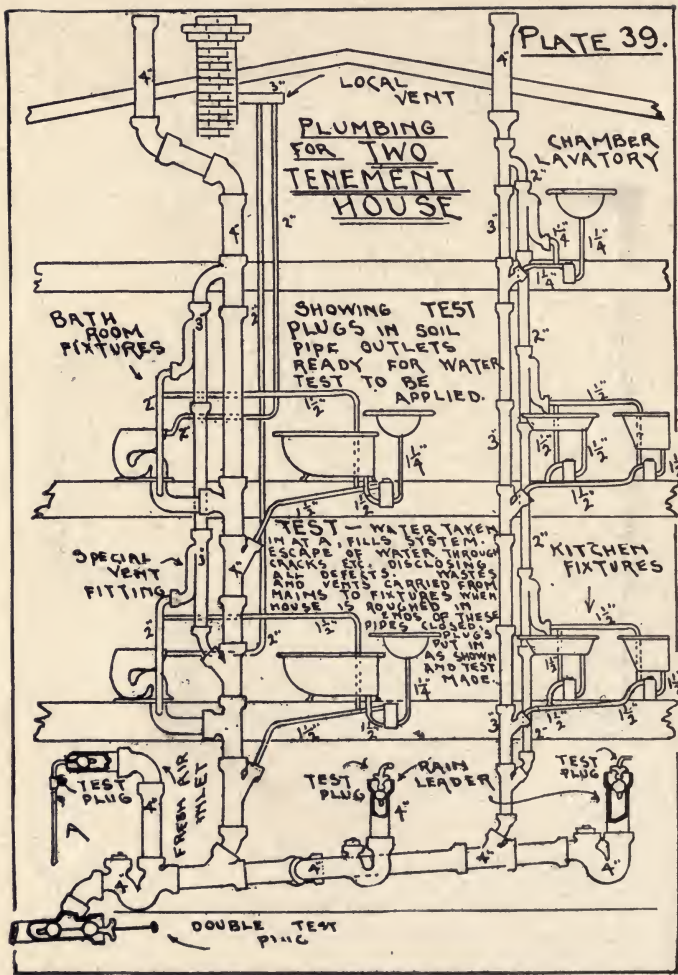 PLATE 39.
4"
4"
3"
LOCAL
VENT
PLUMBING
FOR TWO
TENEMENT
HOUSE
CHAMBER
LAVATORY
2"
2"
3"
1 1/4"
1 1/4"
1 1/4"
4"
BATH
ROOM
FIXTURES
3"
2"
SHOWING TEST
PLUGS IN SOIL
PIPE OUTLETS
READY FOR WATER
TEST TO BE
APPLIED.
2"
2"
2"
1 1/2"
1 1/4"
3"
1 1/2"
1 1/2"
1 1/2"
1 1/2"
1 1/2"
1 1/2"
1 1/2"
TEST — WATER TAKEN
IN AT A, FILLS SYSTEM.
ESCAPE OF WATER THROUGH
CRACKS ETC. DISCLOSING
ALL DEFECTS. WASTES
AND VENTS CARRIED FROM
MAINS TO FIXTURES WHEN
HOUSE IS ROUGHED IN
ENDS OF THESE
PIPES CLOSED,
PLUGS
PUT IN
AS SHOWN
AND TEST
MADE.
4"
SPECIAL
VENT
FITTING
3"
2"
KITCHEN
FIXTURES
2"
2"
1 1/2"
1 1/4"
1 1/2"
1 1/2"
1 1/2"
1 1/2"
1 1/2"
1 1/2"
1 1/2"
3"
2"
TEST
PLUG
4"
FRESH AIR
INLET
TEST
PLUG
RAIN
LEADER
4"
TEST
PLUG
4"
4"
4"
4"
DOUBLE TEST
PLUG